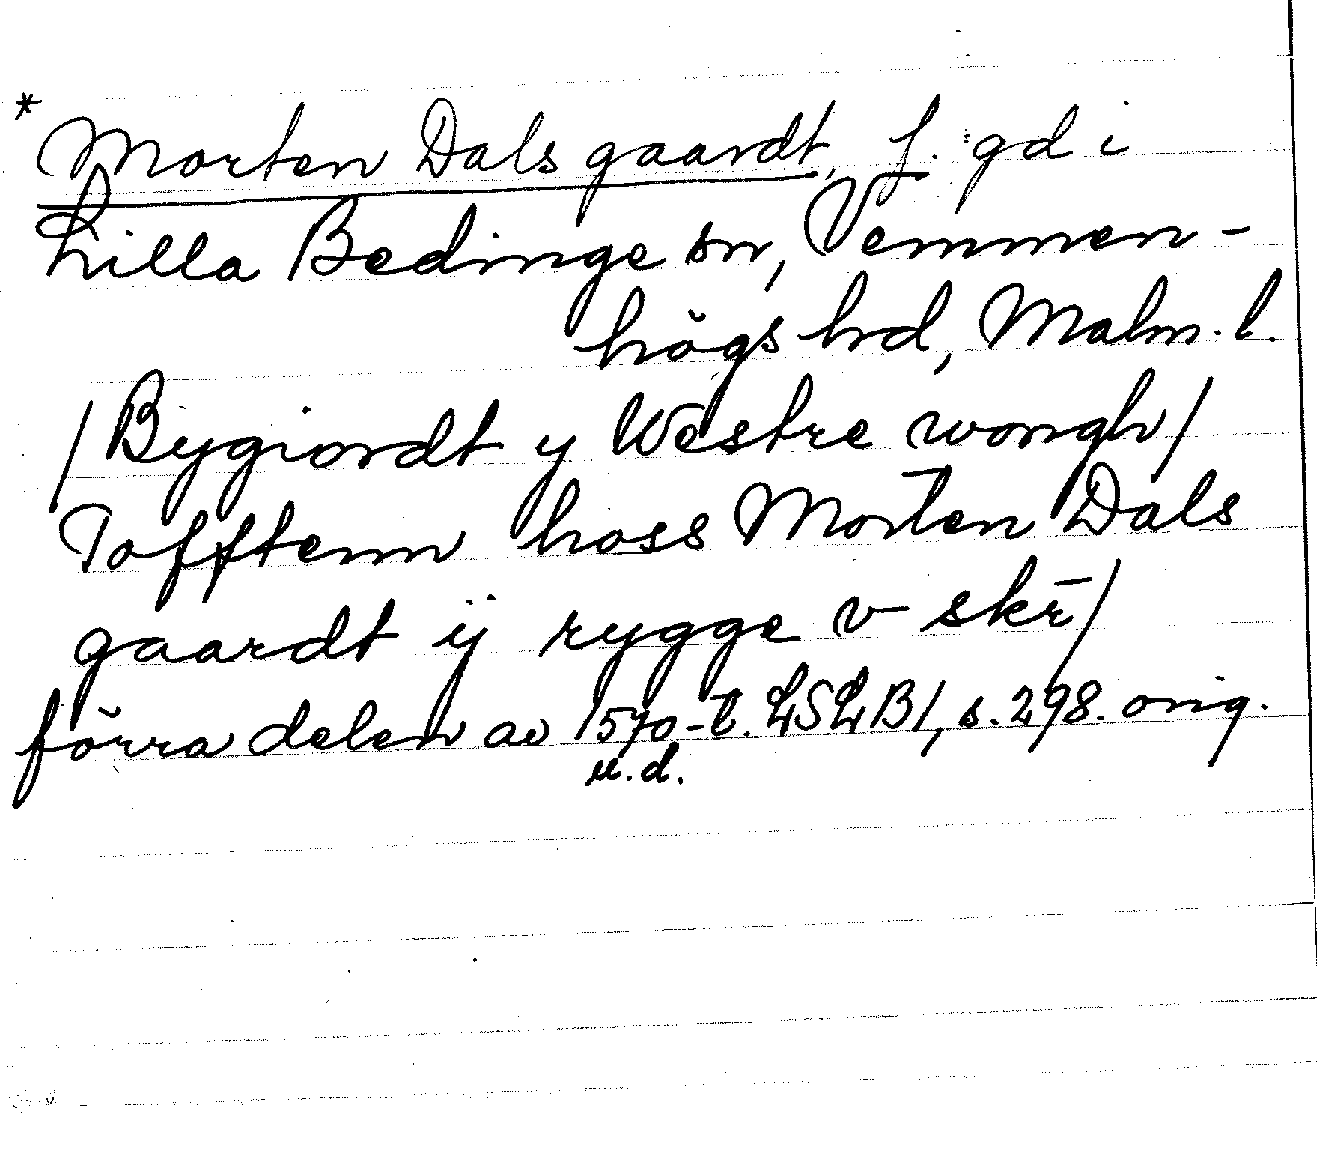 * Morten Dals gaardt, f. gd i
Lilla Bedinge sn, Vemmen-
högs hrd, Malm. l.
/Bygiordt y Westre wongh/
Tofftenn hoss Morten Dals
gaardt ÿ rygge v skr̄/
förra delen av 1570-t. LSLB1, s. 298. orig.
u.d.